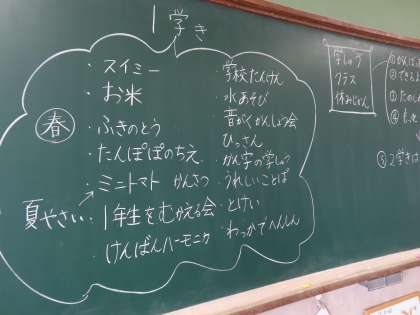 1学き
・スイミー
・お米
春
・ふきのとう
・たんぽぽのちえ
・ミニトマト かんさつ
夏やさい
・1年生をむかえる会
・けんばんハーモニカ
・学校たんけん
・水あそび
・音がくかんしょう会
・ひっさん
・かん字の学しゅう
・うれしいことば
・とけい
・わっかでへんしん
学しゅう
クラス
休みじかん
①がんば
②できる
③たのし
④も
⑤2学きは